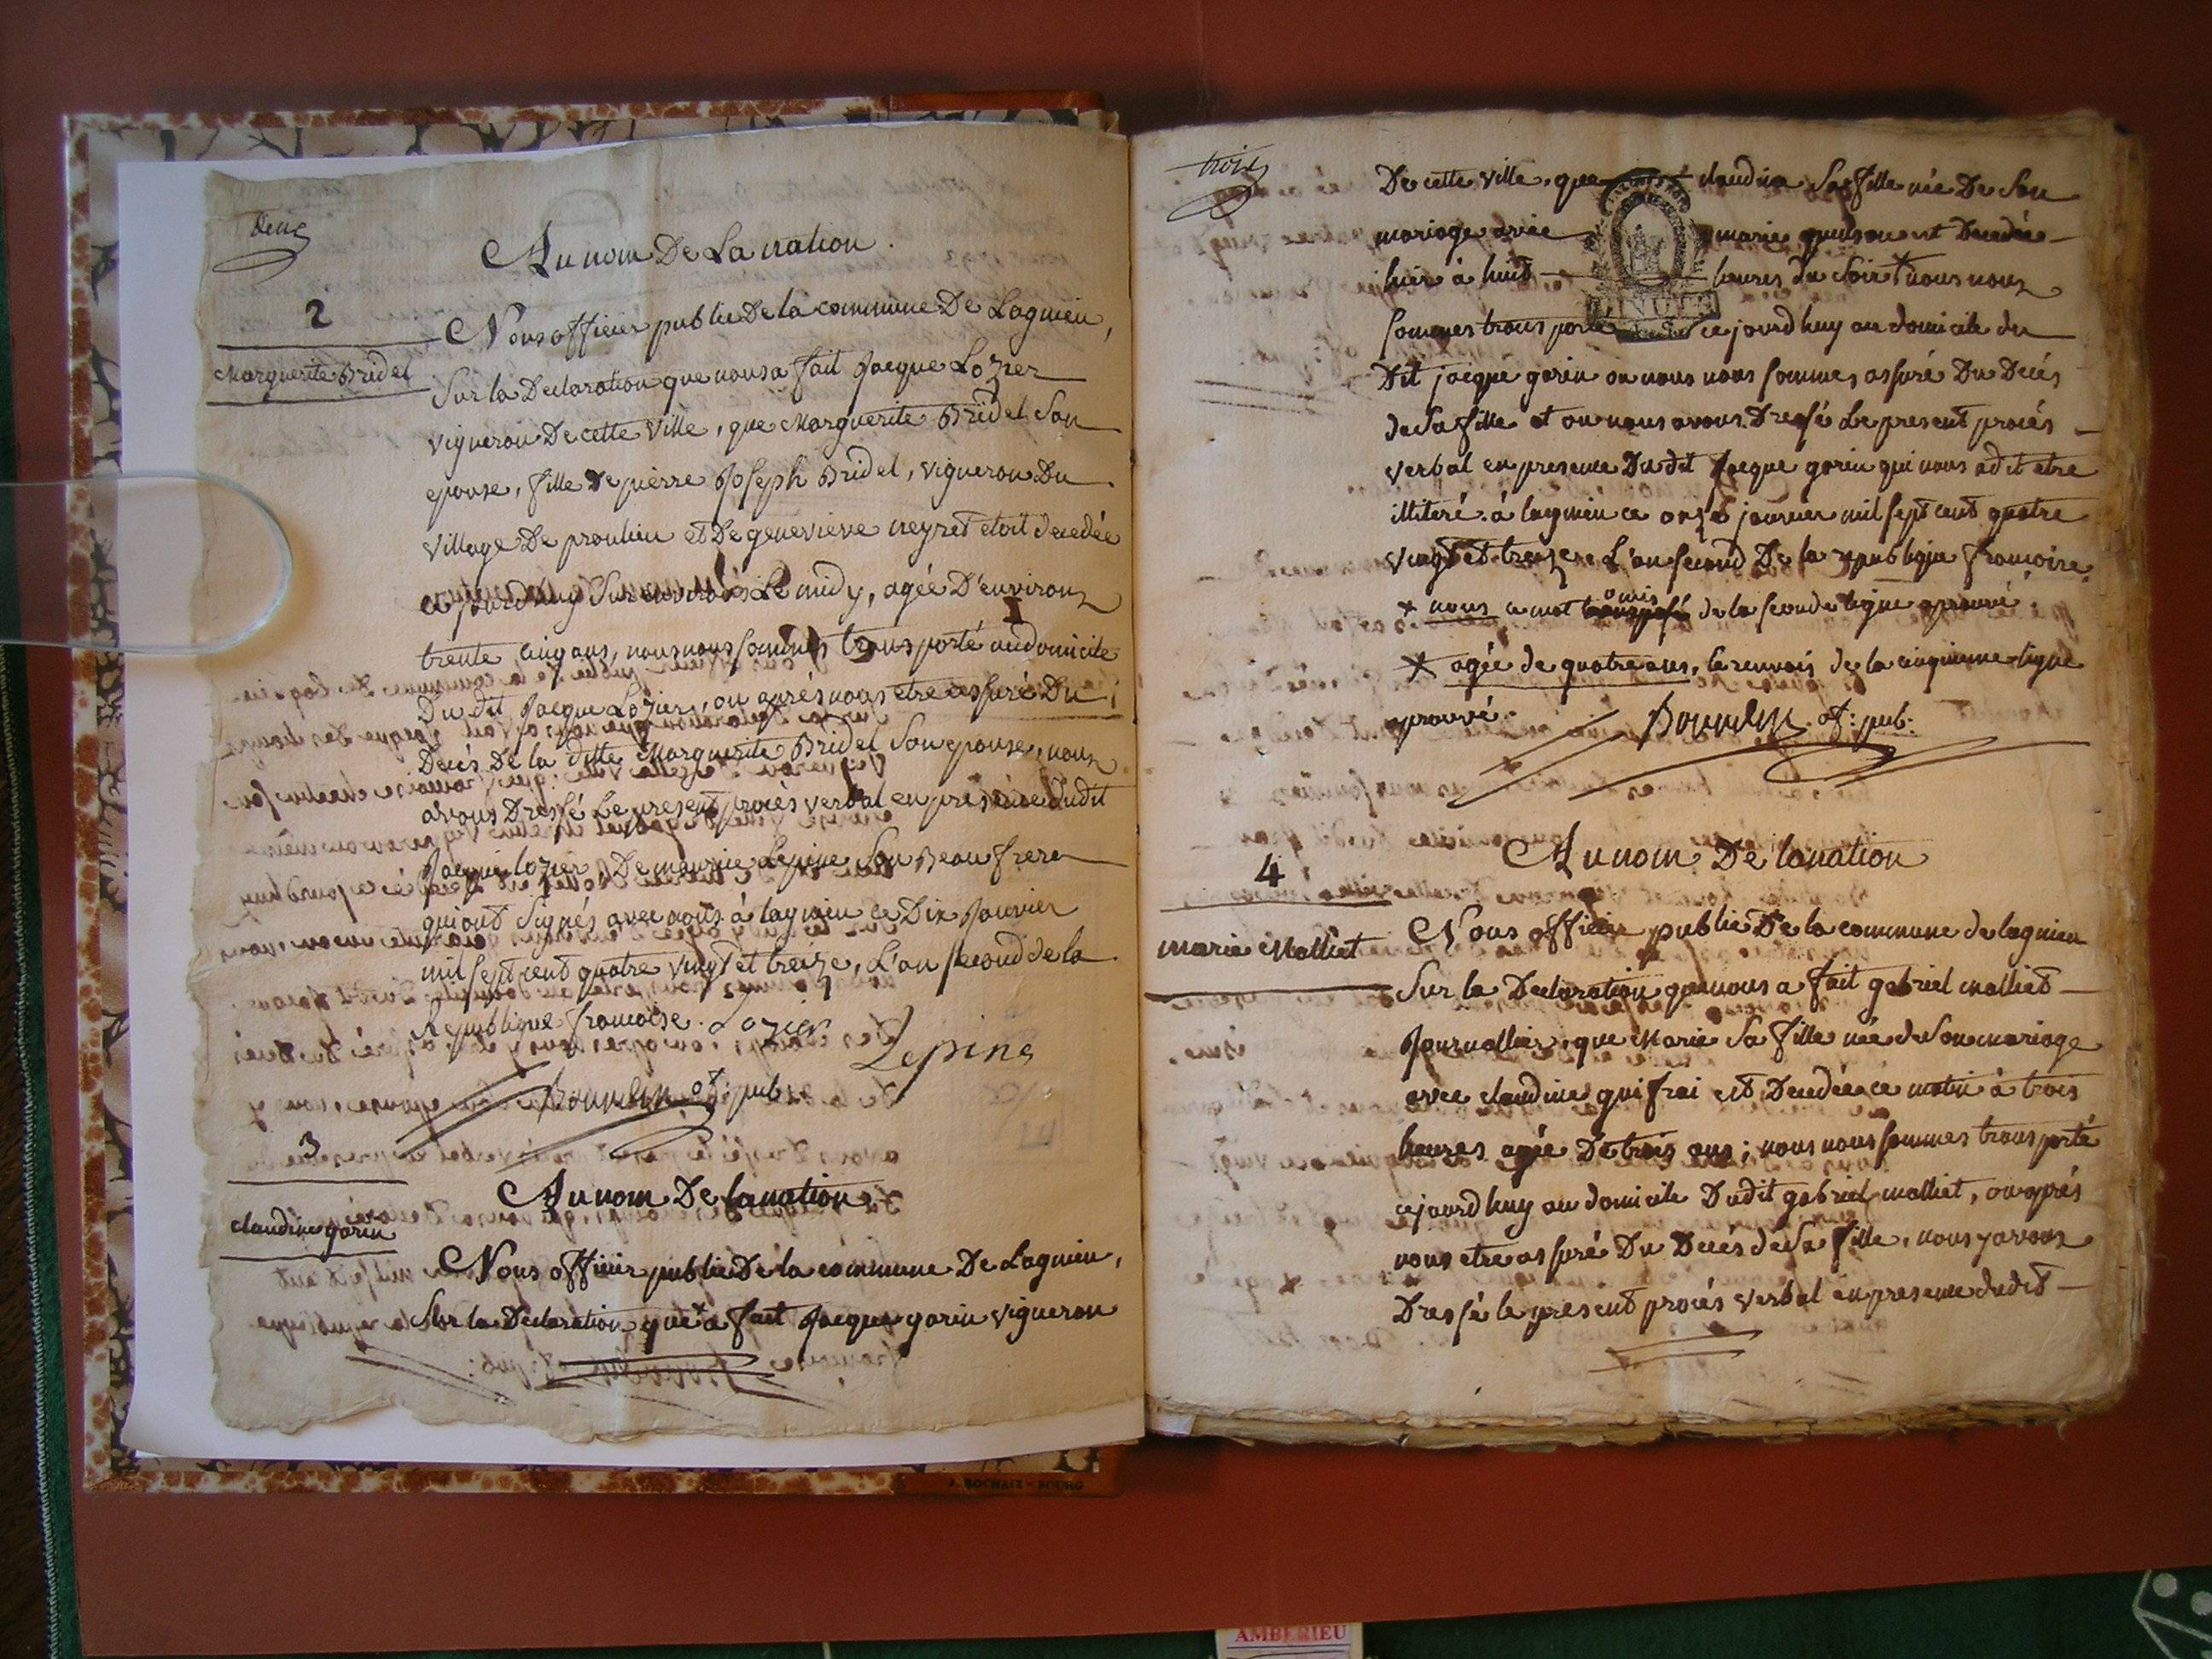 deux
Au nom De La nation.
2
Marguerite Bridel
Nous officier public De la commune De Lagnieu,
Sur la Declaration que nous a fait Jacque Lozier
vigneron De cette ville, que Marguerite Bridel Son
epouse, fille De pierre Joseph Bridel, vigneron Du
village De proulieu et De genevieve neyret etoit decedée
ce jourd'huy Sur environs Le midy, agée D'environ
trente cinq ans, nous nous sommes transporté au domicile
Du dit Jacque Lozier, ou aprés nous etre assuré Du
Decés De la ditte Marguerite Bridel Son epouse, nous
avons Dressé Le present procès verbal en présence dudit
Jacque lozier De maurice Lepine Son Beau frere
qui ont Signés avec nous à lagnieu ce Dix Janvier
mil sept cent quatre vingt et treize, L'an second de la
Republique francoise. Lozier
Lepine
of: pub:
3
Claudine gorin
Au nom De la nation
Nous officier public De la commune De Lagnieu,
Sur la Declaration que * a fait Jacque gorin vigneron
trois
De cette ville, que claudine Sa fille née De Son
mariage avec marie est Decedée
hier à huit heures du Soir * nous nous
sommes transporté ce jourd huy au domicile du
Dit jacque gorin ou nous nous sommes assuré Du Decés
de Sa fille et ou nous avons Dressé Le present procés
verbal en presence Du dit Jacque gorin qui nous a dit etre
illiteré. à lagnieu ce onze janvier mil sept cent quatre
vingt et treize L'an second De la republique francoise.
* nous ce mot omis de la seconde ligne aprouvé.
* agée de quatre ans, le renvois de la cinquieme ligne
aprouvé. of: pub:
4
marie Molliet
Au nom De la nation
Nous officier public De la commune de lagnieu
Sur la Declaration que nous a fait gabriel molliet
Journallier, que Marie Sa fille née de Son mariage
avec claudine quifrai est Decedée ce matin à trois
heures agée De trois ans; nous nous sommes transporté
cejourd huy au domicile Dudit gabriel molliet, ou aprés
nous etre assuré Du Decés de Sa fille, nous y avons
Dressé le present procés verbal en presence dudit
J. ROCHAIX - BOURG
AMBERIEU